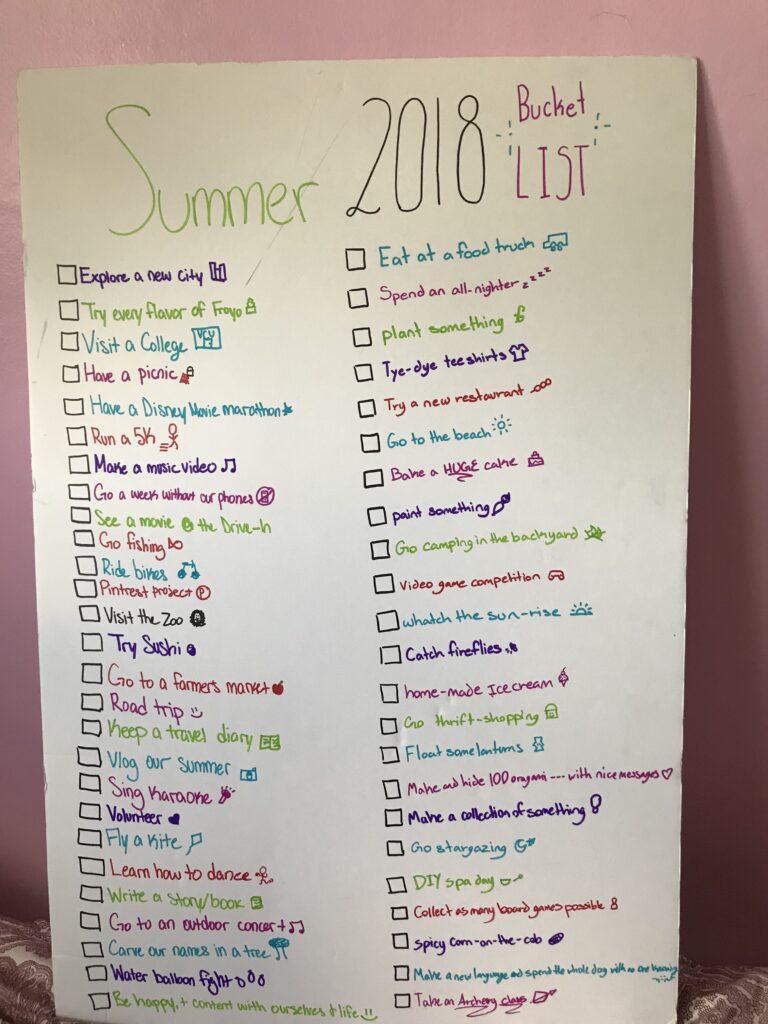 Summer 2018 Bucket
LIST
Explore a new city
Try every flavor of Froyo
Visit a College
VCU
Have a picnic
Have a Disney Movie marathon
Run a 5K
Make a music video
Go a week without our phones
See a movie @ the Drive-In
Go fishing
Ride bikes
Pintrest project P
Visit the Zoo
Try Sushi
Go to a farmers market
Road trip
Keep a travel diary
Vlog our summer
Sing Karaoke
Volunteer
Fly a Kite
Learn how to dance
Write a story/book
Go to an outdoor concert
Carve our names in a tree
Water balloon fight
Be happy, + content with ourselves + life
Eat at a food truck
Spend an all-nighter zzzz
plant something
Tye-dye tee shirts
Try a new restaurant
Go to the beach
Bake a HUGE cake
paint something
Go camping in the backyard
video game competition
whatch the sun-rise
Catch fireflies
home-made Ice cream
Go thrift-shopping
Float some lanterns
Make and hide 100 oragami --- with nice messages
Make a collection of something
Go stargazing
DIY spa day
Collect as many board games possible
spicy corn-on-the-cob
Make a new language and spend the whole day with no one knowing
Take an Archery class